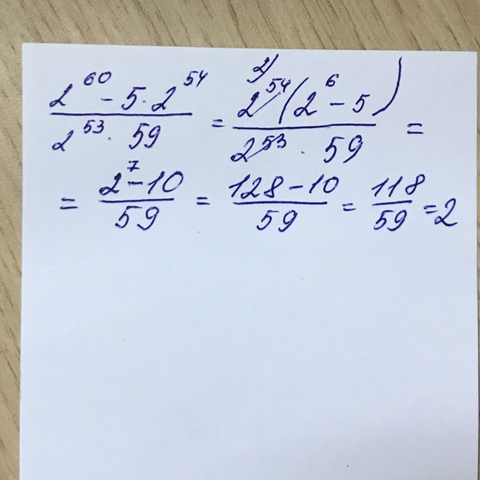 (2^60 - 5·2^54)/(2^53 · 59) = (2^54(2^6 - 5))/(2^53 · 59) =
= (2^7 - 10)/59 = (128 - 10)/59 = 118/59 = 2